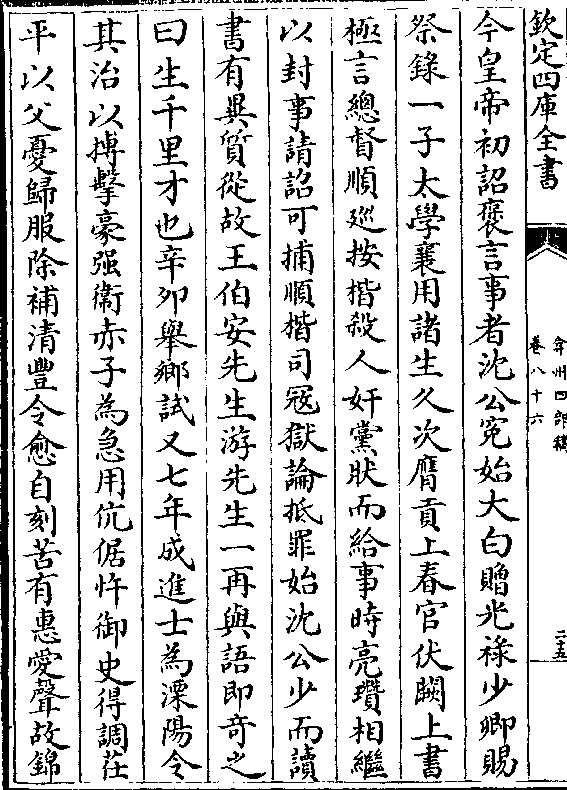 欽定四庫全書
弇州四部稿
卷八十六
二十五
今皇帝初詔褒言事者沈公寃始大白贈光祿少卿賜
祭錄一子太學襄用諸生久次膺貢上春官伏闕上書
極言總督順巡按楷殺人奸黨狀而給事時亮瓚相繼
以封事請詔可捕順楷司寇獄論抵罪始沈公少而讀
書有異質從故王伯安先生游先生一再與語即奇之
曰生千里才也辛卯舉鄉試又七年成進士為溧陽令
其治以搏擊豪强衞赤子為急用伉倨忤御史得調茌
平以父憂歸服除補清豐令愈自刻苦有惠愛聲故錦